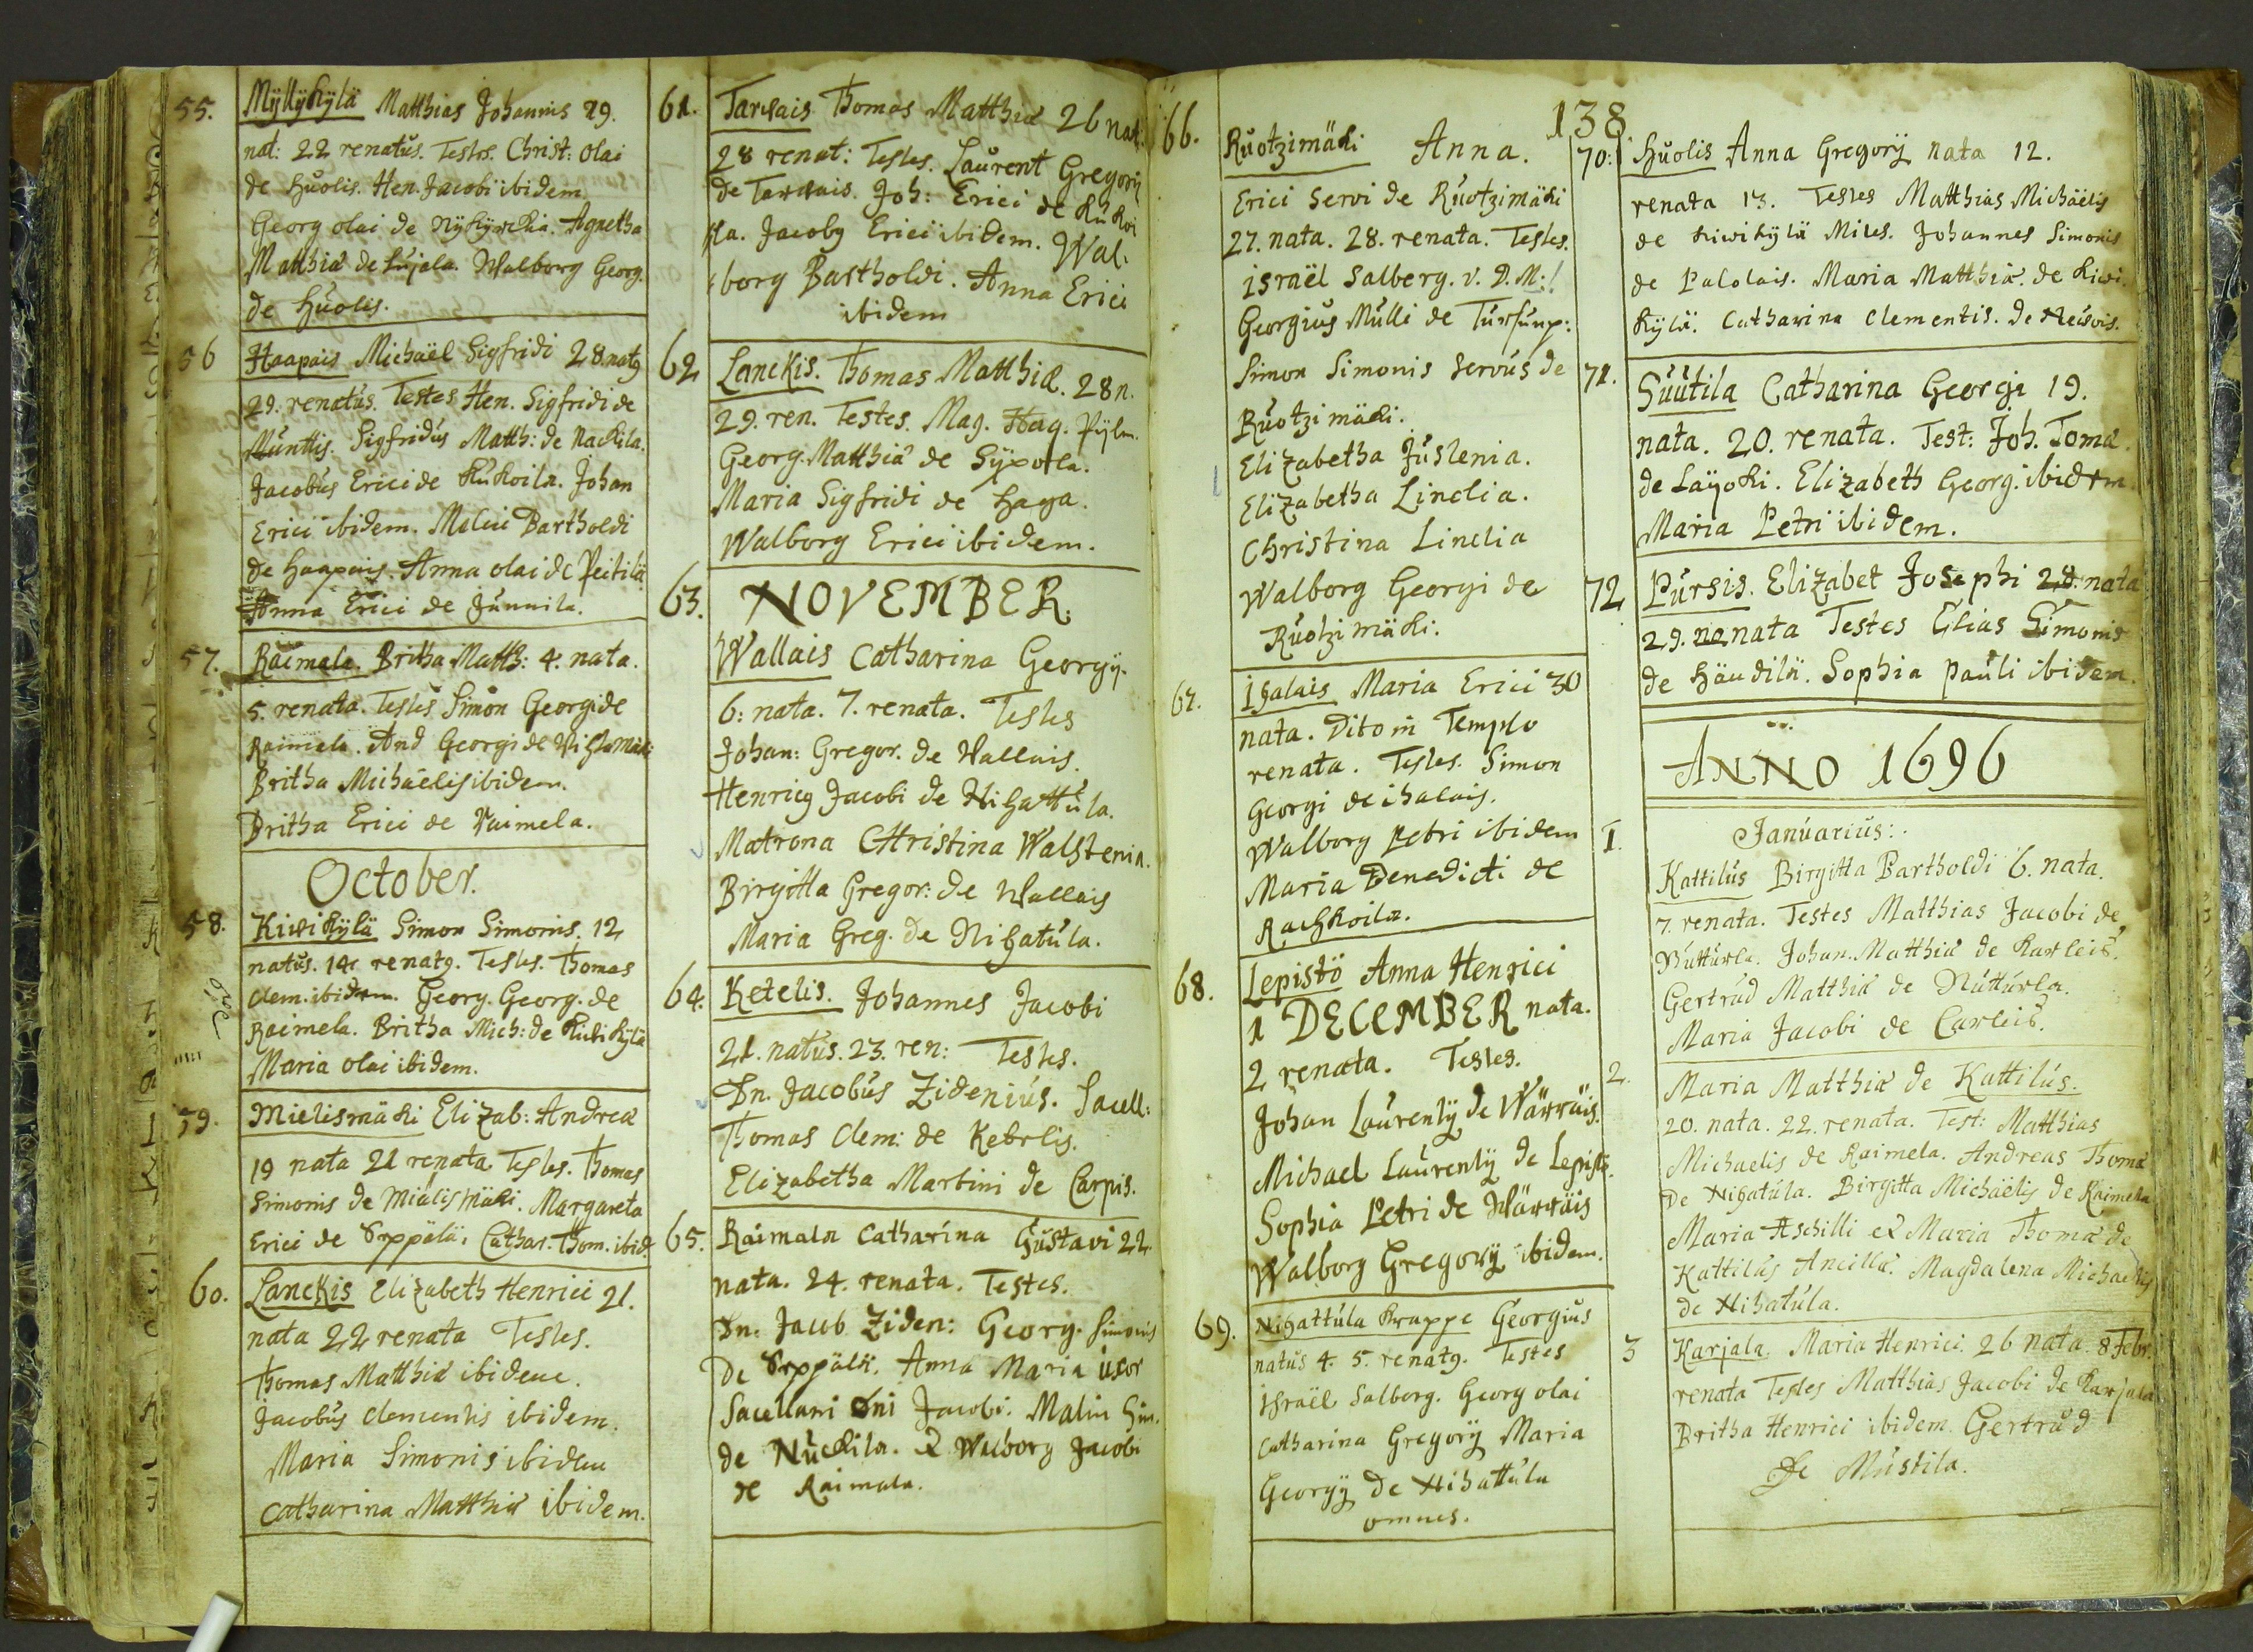 55. Mÿllÿkÿlä Matthias Johannis 19.
nat: 22 renatus. Testes. Christ: Olai
de Huolis. Hen. Jacobi ibidem
Georg olai de Agnetha
Matthiæ de Lujala. Walborg Georg.
de Huolis.
56 Haapais Michaël Sigfridi 28. natg
29. renatus. Testes Hen. Sigfridi de
Munttis. Sigfridus Matth: de Nackila.
Jacobus Erici de Kukoila. Johan
Erici ibidem. Malin Bartholdi
de Haapais. Anna olai de Peitilä
Anna Erici de Junnila.
57. Raimala. Britha Matth: 4. nata.
5. renata. Testes Simon Georgi de
Raimela. And Georgi de
Britha Michaëlis ibidem.
Britha Erici de Raimela.
October.
58. Kiwikÿlä Simon Simonis. 12
natus. 14 renatg. Testes. Thomas
Clem. ibidem. Georg. Georg. de
Raimela. Britha Mich: de Kiwikÿlä
Maria olai ibidem.
59. Mielismäki Elizab: Andreæ
19 nata 21 renata Testes. Thomas
Simonis de Miälismäki. Margareta
Erici de Seppälä. Cathar. Thom. ibid.
60. Lanckis Elizabeth Henrici 21.
nata 22 renata Testes.
Thomas Matthiæ ibidem.
Jacobus Clementis ibidem.
Maria Simonis ibidem
Catharina Matthiæ ibidem.
61. Tarwais Thomas Matthiæ 26 nat.
28 renat: Testes. Laurent Gregorij
de Tarwais. Joh: Erici de Kukoi
la. Jacobg Erici ibidem. Wal:
borg Bartholdi. Anna Erici
ibidem
62 Lanckis. Thomas Matthiæ. 28 n.
29. ren. Testes. Mag. Hag. Pÿlm.
Georg. Matthiæ de
Maria Sigfridi de Haga.
Walborg Erici ibidem.
63. NOVEMBER.
Wallais Catharina Georgij.
6: nata. 7. renata. Testes
Johan: Gregor. de Wallais.
Henricg Jacobi de Nihattula.
Matrona Christina Walstenia.
Birgitta Gregor: de Wallais
Maria Greg. de Nihatula.
64. Ketelis. Johannes Jacobi
21. natus. 23. ren: Testes.
Dn. Jacobus Zidenius. Sacell:
Thomas Clem: de Ketelis.
Elizabetha Martini de Carpis.
65. Raimala Catharina Gustavi 22
nata. 24. renata. Testes.
Dn. Jacob Ziden: Georg. Simonis
De Seppälä. Anna Maria uxor
Sacellani Dni Jacobi. Malin Sim.
de Nuckila. & Walborg Jacobi
de Raimala.
138
66. Ruotzimäki Anna.
Erici Servi de Ruotzimäki
27. nata. 28. renata. Testes.
Israël Salberg. V. D. M:
Georgius Mulli de
Simon Simonis servus de
Ruotzimäki.
Elizabetha Juslenia.
Elizabetha Linelia.
Christina Linelia
Walborg Georgi de
Ruotzimäki.
67. Ihalais Maria Erici 30
nata. Dito in Templo
renata. Testes. Simon
Georgi de ihalais.
Walborg Petri ibidem
Maria Benedicti de
Rachkoila.
68. Lepistö Anna Henrici
1 DECEMBER nata.
2 renata. Testes.
Johan Laurentij de Wärräis.
Michael Laurentij de Lepistö.
Sophia Petri de Wärräis
Walborg Gregorij ibidem.
69. Nihattula Krappe Georgius
natus 4. 5. renatg. Testes
Israël Salberg. Georg olai
Catharina Gregorij Maria
Georgij de Nihattula
omnes.
70: Huolis Anna Gregorij nata 12.
renata 13. Testes Matthias Michaëlis
de Kiwikÿlä Miles. Johannes Simonis
de Palolais. Maria Matthiæ de Kiwi
Kÿlä. Catharina Clementis. de Neuvois.
71. Suutila Catharina Georgi 19.
nata. 20. renata. Test: Joh. Tomæ.
de Layoki. Elizabeth Georg. ibidem.
Maria Petri ibidem.
72 Pursis. Elizabet Josephi 28. nata
29. nata Testes Elias Simonis
de Häudilä. Sophia Pauli ibidem.
ANNO 1696
Januarius:
1. Kattilus Birgitta Bartholdi 6. nata.
7. renata. Testes Matthias Jacobi de
Nutturla. Johan. Matthiæ de Karleis.
Gertrud Matthiæ de Nutturla.
Maria Jacobi de Carleis.
2. Maria Matthiæ de Kattilus.
20. nata. 22. renata. Test: Matthias
Michaelis de Raimela. Andreas Thomæ
De Nihatula. Birgitta Michaëlis de Raimela
Maria Aschilli et Maria Thomæ de
Kattilus Ancillæ. Magdalena Michaelis
de Nihatula.
3 Karjala. Maria Henrici. 26 nata. 8 Febr.
renata Testes Matthias Jacobi de Karjala
Britha Henrici ibidem. Gertrud
De Mustila.